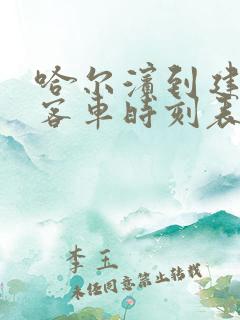 哈尔滨到建
客车时刻表
李玉
未经同意禁止转载